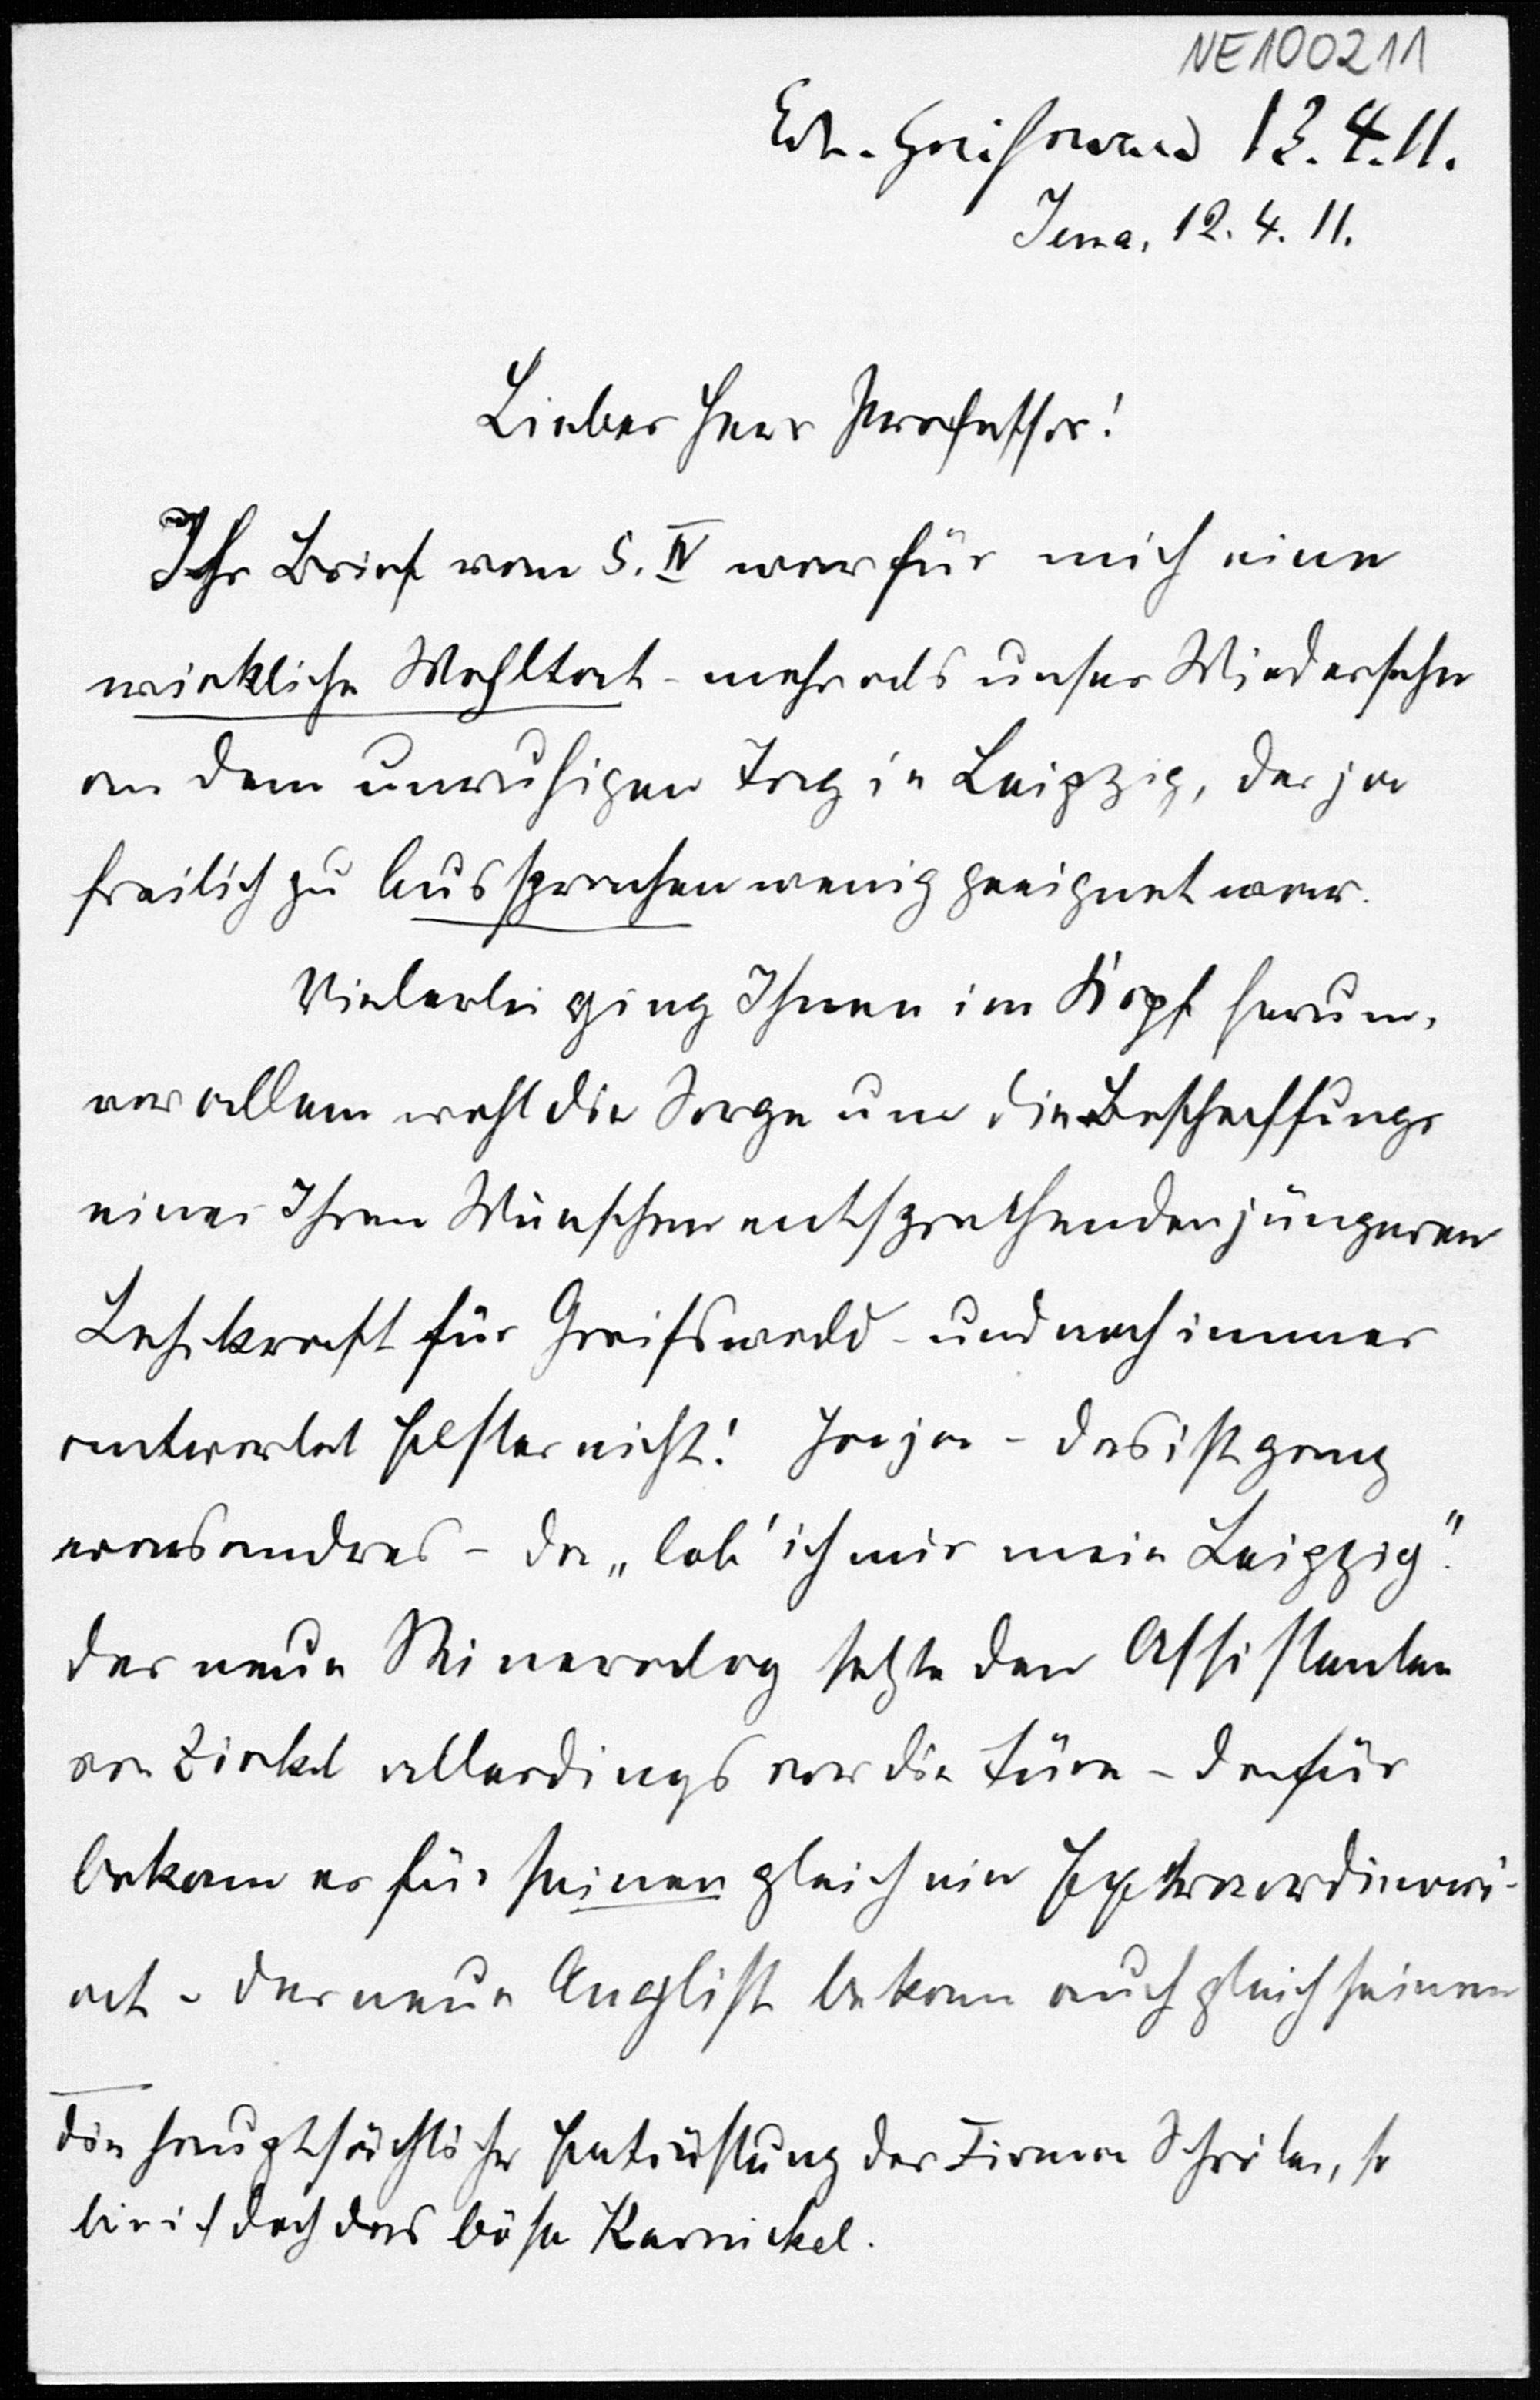 NE100211
Erh. Greifswald 13.4.11.
Jena, 12.4.11.
Lieber Herr Professor!
Ihr Brief vom 5. IV war für mich eine
wirkliche Wohltat - mehr als unser Wiedersehn
an dem unruhigen Tag in Leipzig, der ja
freilich zu Aussprachen wenig geeignet war.
Vielerlei ging Ihnen im Kopf herum,
vor allem wohl die Sorge um die Beschaffung
einer Ihren Wünschen entsprechenden jüngeren
Lehrkraft für Greifswald - und noch immer
antwortet Elster nicht! Ja ja - das ist ganz
was andres - da „lob' ich mir mein Leipzig".
Der neue Mineralog setzte den Assistenten
von Zirkel allerdings vor die Türe - dafür
bekam er für seinen gleich ein Extraordinari-
at - der neue Anglist bekam auch gleich seinen
die hauptsächliche Entrüstung der Firma, so
bin ich doch das böse Karnickel.